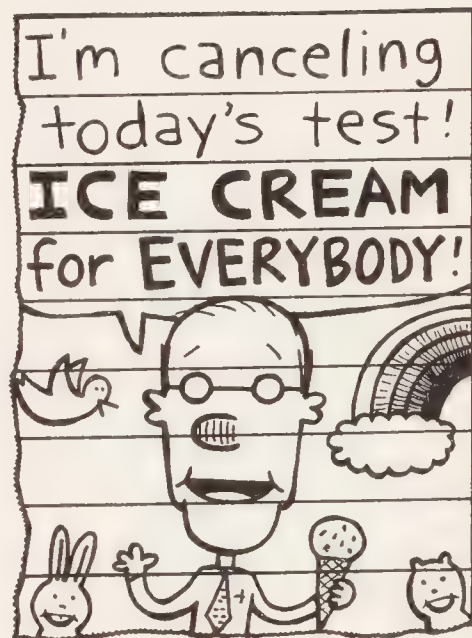 I'm canceling
today's test!
ICE CREAM
for EVERYBODY!